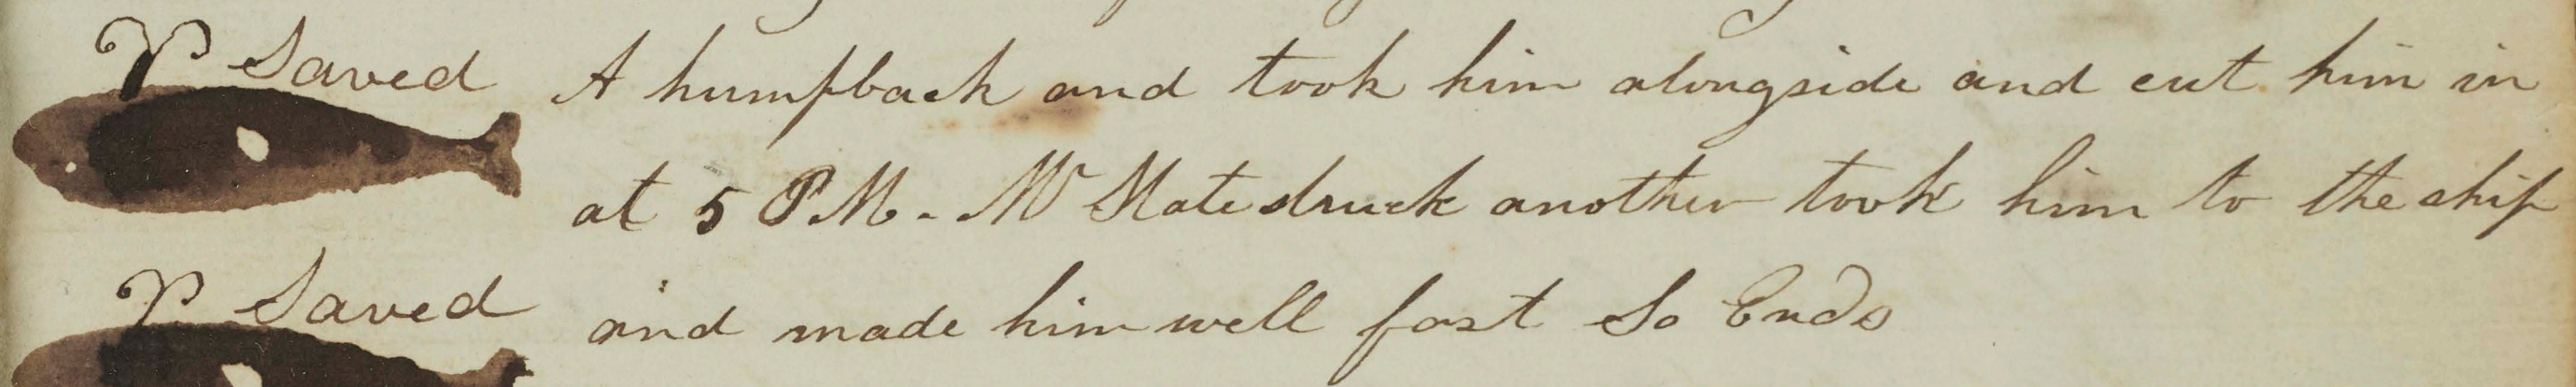 Saved A humpback and took him alongside and cut him in
at 5 PM. Mr Mate struck another took him to the ship
Saved and made him well fast So Ends